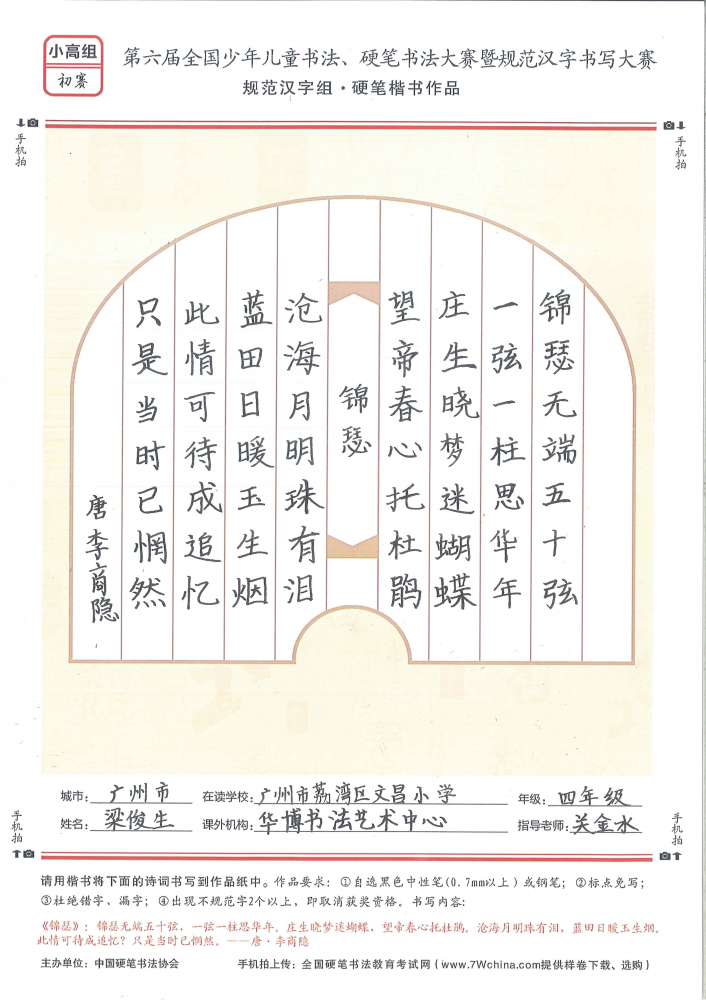 小高组
初赛
第六届全国少年儿童书法、硬笔书法大赛暨规范汉字书写大赛
规范汉字组·硬笔楷书作品
手机拍
手机拍
锦瑟无端五十弦
一弦一柱思华年
庄生晓梦迷蝴蝶
望帝春心托杜鹃
锦瑟
沧海月明珠有泪
蓝田日暖玉生烟
此情可待成追忆
只是当时已惘然
唐李商隐
城市：广州市 在读学校：广州市荔湾区文昌小学 年级：四年级
姓名：梁俊生 课外机构：华博书法艺术中心 指导老师：关金水
手机拍
手机拍
请用楷书将下面的诗词书写到作品纸中。作品要求：①自选黑色中性笔(0.7mm以上）或钢笔；②标点免写；
③杜绝错字、漏字；④出现不规范字2个以上，即取消获奖资格。书写内容：
《锦瑟》：锦瑟无端五十弦，一弦一柱思华年。庄生晓梦迷蝴蝶，望帝春心托杜鹃。沧海月明珠有泪，蓝田日暖玉生烟。
此情可待成追忆？只是当时已惘然。——唐·李商隐
主办单位：中国硬笔书法协会 手机拍上传：全国硬笔书法教育考试网（www.7Wchina.com提供样卷下载、选购）